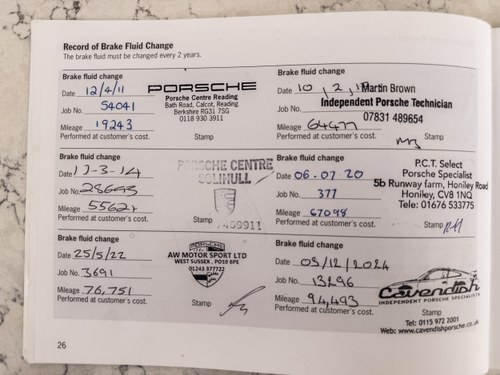 Record of Brake Fluid Change
The brake fluid must be changed every 2 years.
Brake fluid change
Date 12/4/11
Job No. 54041
Mileage 19243
Performed at customer's cost.
PORSCHE
Porsche Centre Reading
Bath Road, Calcot, Reading
Berkshire RG31 7SG
0118 930 3911
Stamp
Brake fluid change
Date 10, 2,
Job No.
Mileage
Performed at customer's cost.
Martin Brown
Independent Porsche Technician
07831 489654
Stamp
Brake fluid change
Date 17-3-14
Job No.
Mileage
Performed at customer's cost.
PORSCHE CENTRE
SOLIHULL
Stamp
Brake fluid change
Date 06-07-20
Job No. 377
Mileage 67098
Performed at customer's cost.
P.C.T. Select
Porsche Specialist
5b Runway farm, Honiley Road
Honiley, CV8 1NQ
Tele: 01676 533775
Stamp
Brake fluid change
Date 25/5/22
Job No. 3691
Mileage 76,751
Performed at customer's cost.
PORSCHE
AW MOTOR SPORT LTD
WEST SUSSEX, PO10 8PE
01243 377722
Stamp
Brake fluid change
Date 05/12/2024
Job No. 13296
Mileage 94,493
Performed at customer's cost.
Cavendish
INDEPENDENT PORSCHE SPECIALISTS
Stamp
Tel: 0115 972 2001
Web: www.cavendishporsche.co.uk
26